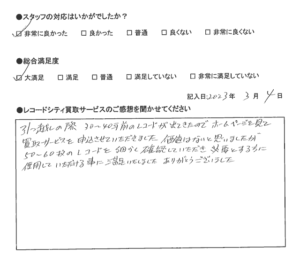 ●スタッフの対応はいかがでしたか?
☑ 非常に良かった □ 良かった □ 普通 □ 良くない □ 非常に良くない
●総合満足度
☑ 大満足 □ 満足 □ 普通 □ 満足していない □ 非常に満足していない
記入日 2023年 3月 4日
●レコードシティ買取サービスのご感想を聞かせてください
引っ越しの際 30〜40年前のレコードが出てきたので ホームページを見て
買取サービスを申込させていただきました 価値はないと思いましたが
50〜60枚のレコードを細かく確認していただき 必要とする方に
使用していただける事に ご満足いたしました ありがとうございました